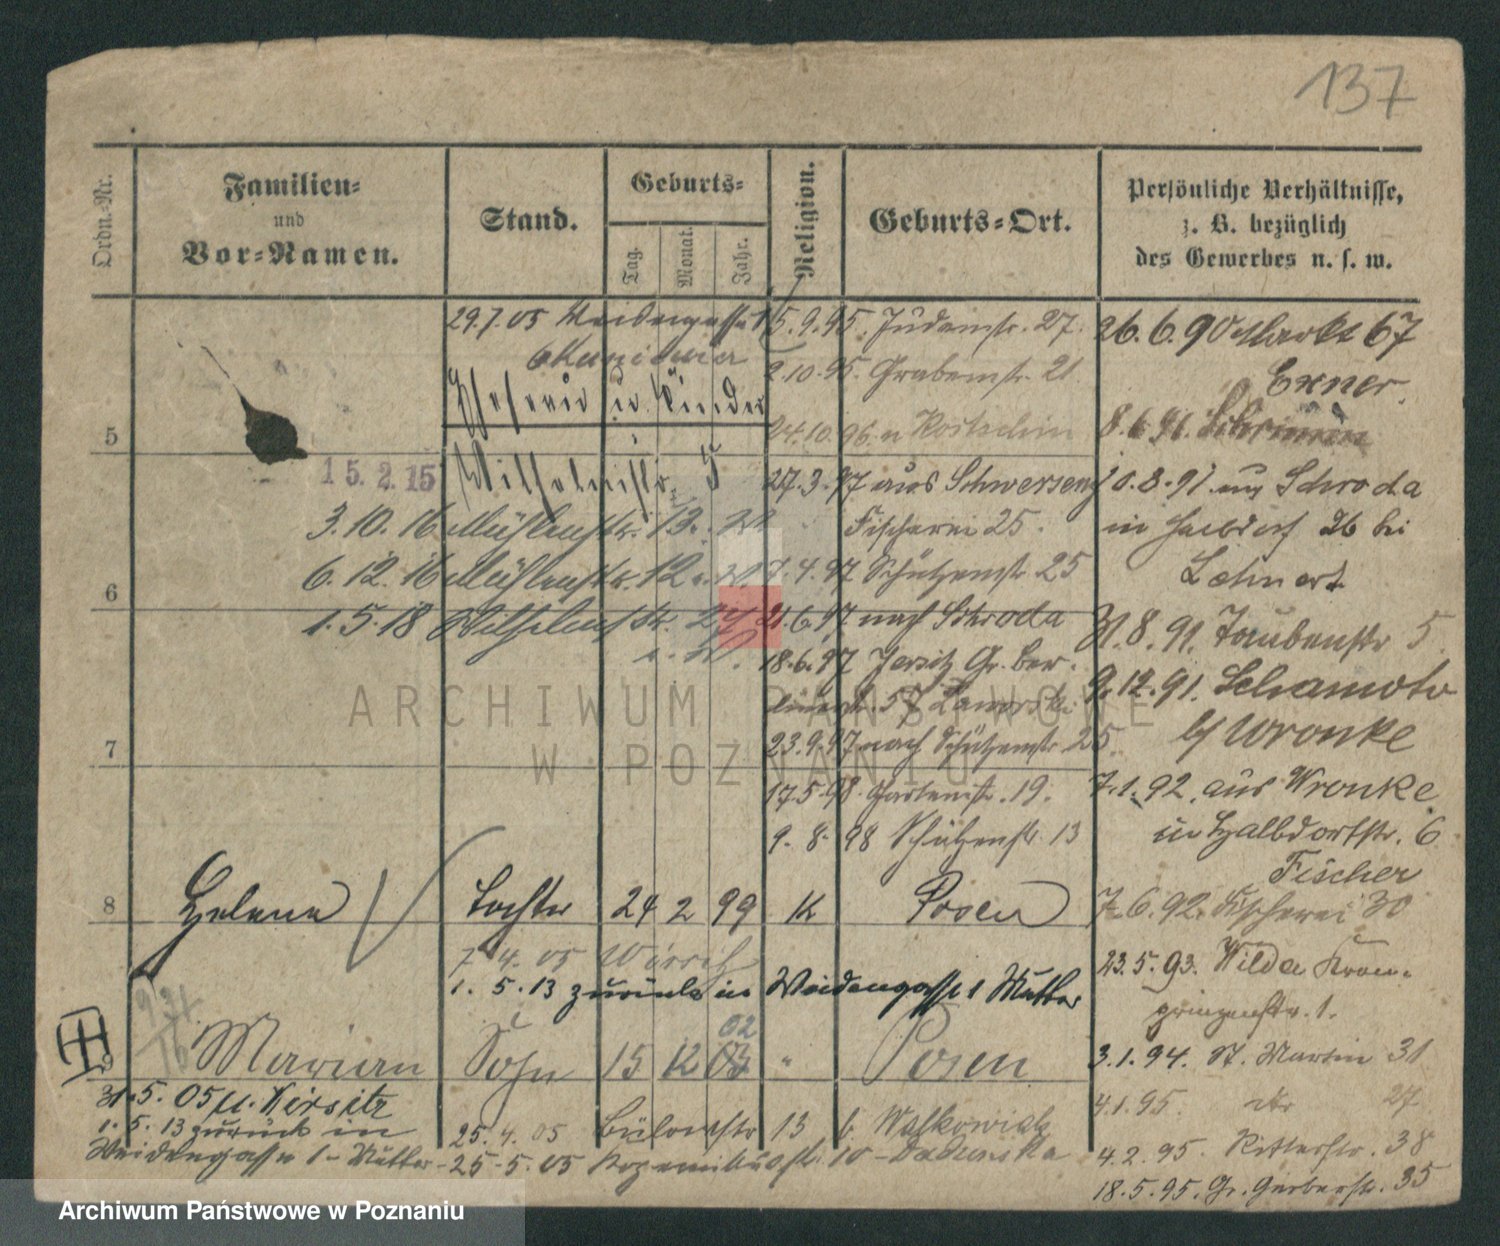 137
Ordn.-Nr.
Familien-
und
Vor-Namen.
Stand.
Geburts-
Tag.
Monat.
Jahr.
Religion.
Geburts-Ort.
Persönliche Verhältnisse,
z. B. bezüglich
des Gewerbes u. s. w.
29.7.05 Weidengasse 1
Ehefrau u. Kinder
5
15.2.15 Wilhelmstr.
3.10.16 Mühlenstr. 13.
6.12.16 Mühlenstr. 12
6
1.5.18 Wilhelmstr. 24
7
5.9.95. Judenstr. 27.
2.10.95. Grabenstr. 21
24.10.96. n
27.3.97 aus Schwersenz
Fischerei 25.
7.4.97 Schützenstr. 25
21.6.97 nach Schroda
18.6.97 Jersitz Gr. Ber-
linerstr. 57 Jaworski
23.9.97 nach Schützenstr. 25.
17.5.98. Gartenstr. 19.
9.8.98 Schützenstr. 13
26.6.90 Markt 67
Exner.
8.6.91.
10.8.91. aus Schroda
in Halbdorf 26 bei
Lehnert
31.8.91. Taubenstr 5.
9.12.91. Schamotu
b/ Wronke
7.1.92. aus Wronke
in Halbdorfstr. 6
Fischer
7.6.92. Fischerei 30
23.5.93. Wilda Kron-
prinzenstr. 1.
3.1.94. St. Martin 31
4.1.95. dto 27
4.2.95. Ritterstr. 38
18.5.95. Gr. Gerberstr. 35
8 Helene Tochter 24 2 99 K Posen
7.4.05
1.5.13 zurück in Weidengasse 1 Mutter
9 Marian Sohn 15 12 02 " Posen
31.5.05
1.5.13 zurück in
Weidengasse 1 - Mutter
25.4.05 Bülowstr 13 b. Walkowiak
25.5.05
ARCHIWUM PAŃSTWOWE
W POZNANIU
Archiwum Państwowe w Poznaniu